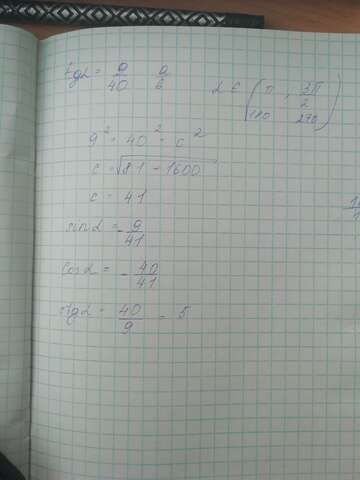 tgα = 9/40 a/b α ∈ (π, 3π/2)
180 270
9² + 40² = c²
c = √81 + 1600
c = 41
sin α = - 9/41
cos α = - 40/41
ctg α = 40/9